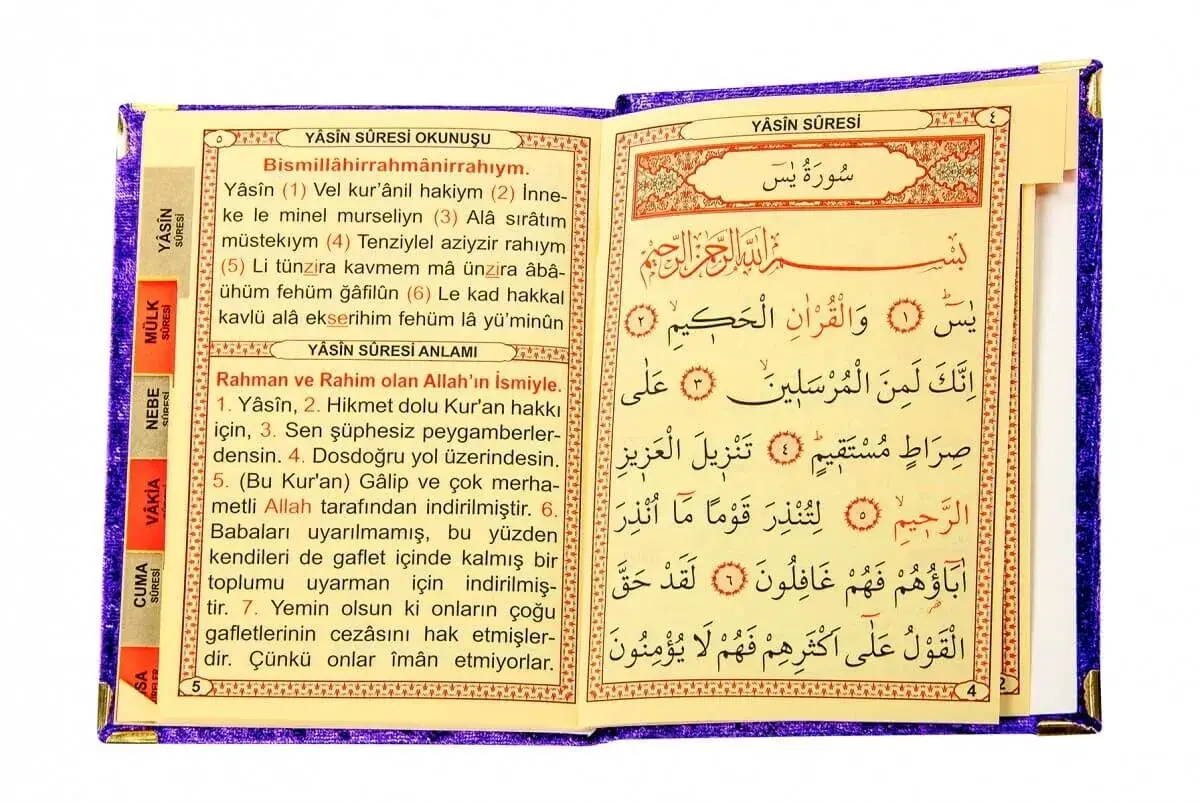 YÂSÎN SÛRESİ
٤
سُورَةُ يٰسٓ
بِسْمِ اللّٰهِ الرَّحْمٰنِ الرَّحِيمِ
يٰسٓ ۚ ﴿١﴾ وَالْقُرْاٰنِ الْحَك۪يمِۙ ﴿٢﴾
اِنَّكَ لَمِنَ الْمُرْسَل۪ينَۙ ﴿٣﴾ عَلٰى
صِرَاطٍ مُسْتَق۪يمٍۜ ﴿٤﴾ تَنْز۪يلَ الْعَز۪يزِ
الرَّح۪يمِۙ ﴿٥﴾ لِتُنْذِرَ قَوْمًا مَٓا اُنْذِرَ
اٰبَٓاؤُ۬هُمْ فَهُمْ غَافِلُونَ ﴿٦﴾ لَقَدْ حَقَّ
الْقَوْلُ عَلٰٓى اَكْثَرِهِمْ فَهُمْ لَا يُؤْمِنُونَ
4
2
٥
YÂSÎN SÛRESİ OKUNUŞU
Bismillâhirrahmânirrahıym.
Yâsîn (1) Vel kur’ânil hakiym (2) İnne-
ke le minel murseliyn (3) Alâ sırâtım
müstekıym (4) Tenziylel aziyzir rahıym
(5) Li tünzira kavmem mâ ünzira âbâ-
ühüm fehüm ğâfilûn (6) Le kad hakkal
kavlü alâ ekserihim fehüm lâ yü’minûn
YÂSÎN SÛRESİ ANLAMI
Rahman ve Rahim olan Allah’ın İsmiyle.
1. Yâsîn, 2. Hikmet dolu Kur'an hakkı
için, 3. Sen şüphesiz peygamberler-
densin. 4. Dosdoğru yol üzerindesin.
5. (Bu Kur'an) Gâlip ve çok merha-
metli Allah tarafından indirilmiştir. 6.
Babaları uyarılmamış, bu yüzden
kendileri de gaflet içinde kalmış bir
toplumu uyarman için indirilmiş-
tir. 7. Yemin olsun ki onların çoğu
gafletlerinin cezâsını hak etmişler-
dir. Çünkü onlar îmân etmiyorlar.
5
YÂSÎN
SÛRESİ
MÜLK
SÛRESİ
NEBE
SÛRESİ
VÂKIA
CUMA
SÛRESİ